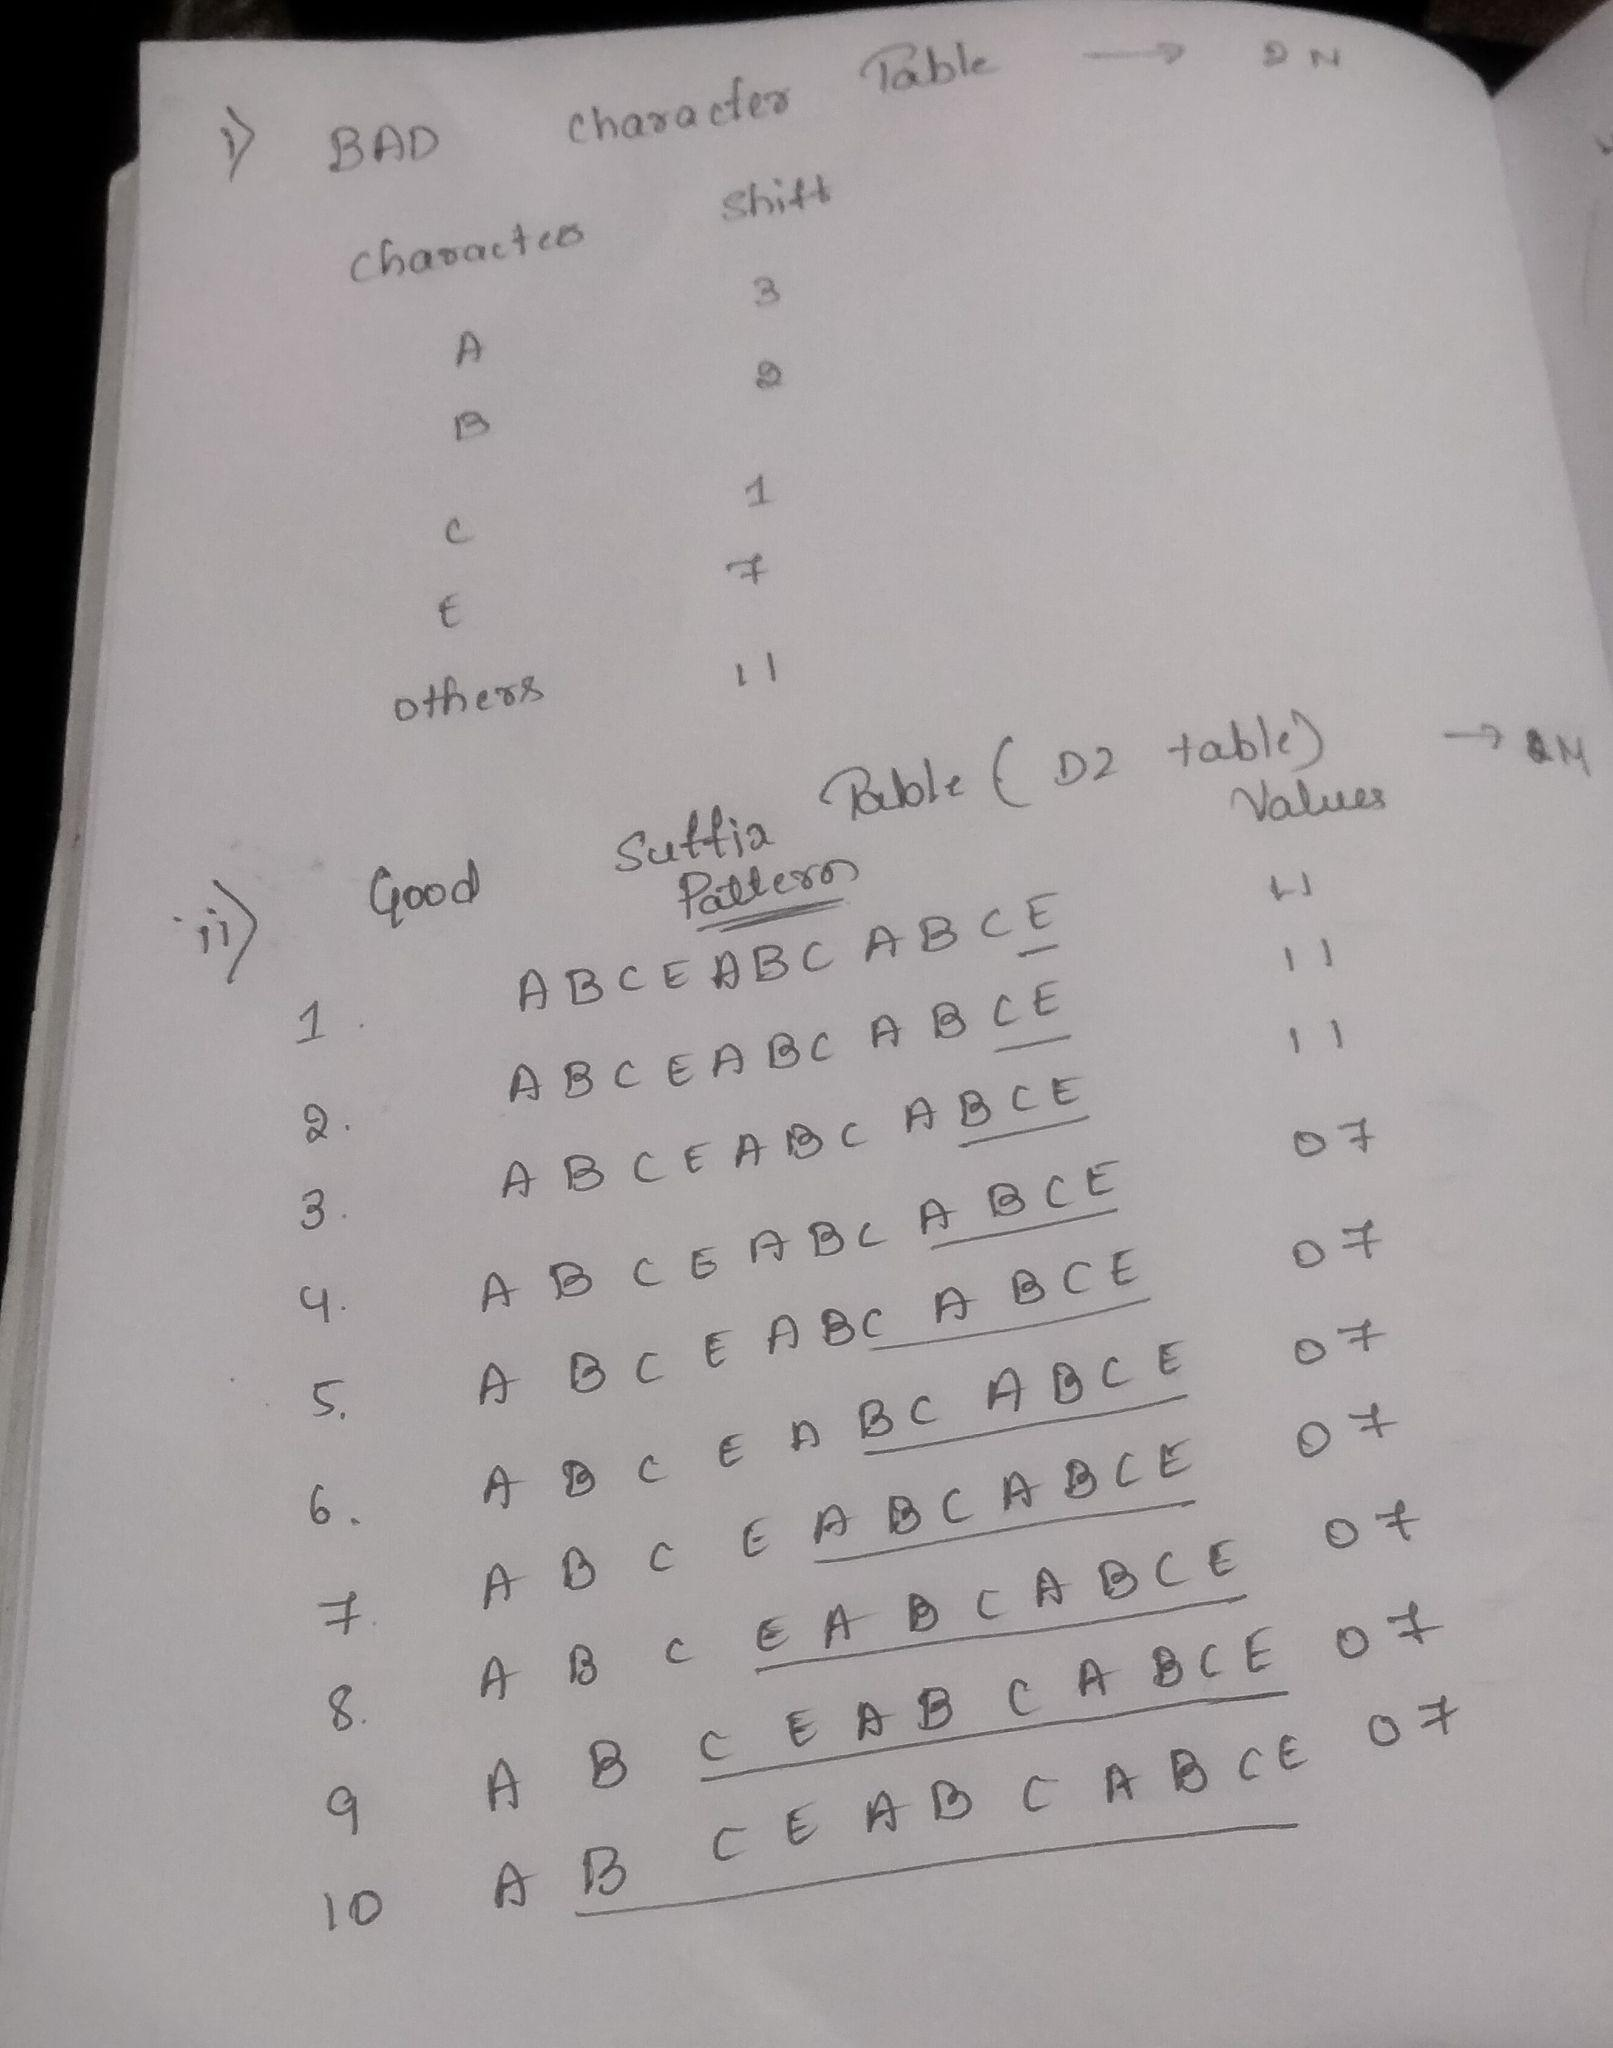 i) BAD Character Table → 2M
Character Shift
A 3
B 2
C 1
E 7
others 11
ii) Good Suffix Table (D2 table) → 2M
Pattern Values
1. ABCEABCABCE 11
2. ABCEABCABCE 11
3. ABCEABCABCE 11
4. ABCEABCABCE 07
5. ABCEABCABCE 07
6. ABCEABCABCE 07
7. ABCEABCABCE 07
8. ABCEABCABCE 07
9 ABCEABCABCE 07
10 ABCEABCABCE 07